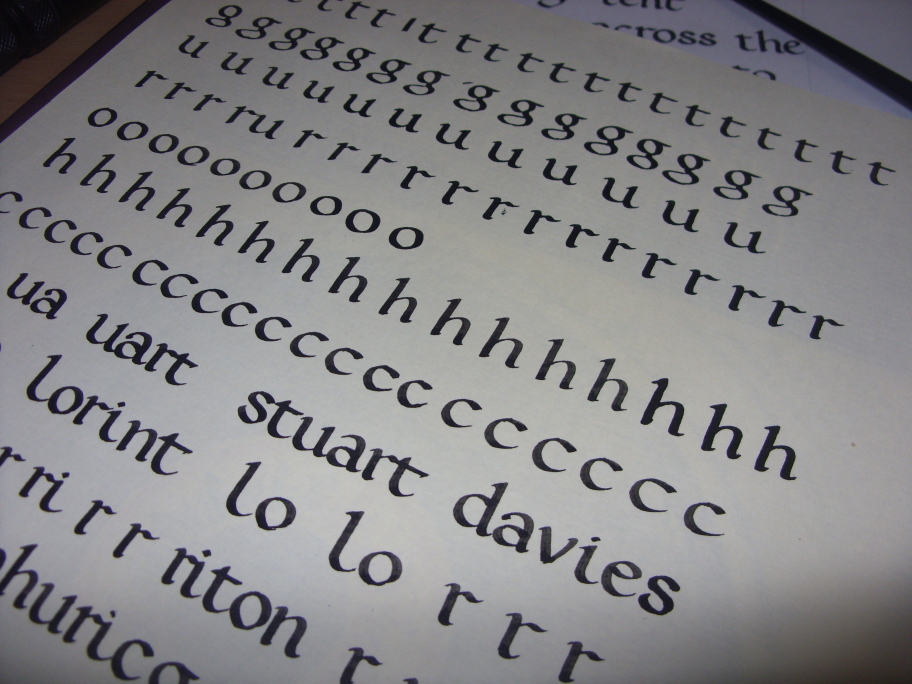 tent
across the
to
t t t t l t t t t t t t t t t t t t t t
g g g g g g g g g g g g g g g
u u u u u u u u u u u u u u
r r r r u r r r r r r r r r r r r r r r
o o o o o o o o o
h h h h h h h h h h h h h h h h
c c c c c c c c c c c c c c c c c c c
ua uart stuart davies
lorint lo lo r r r
r ri r r riton r
hurico